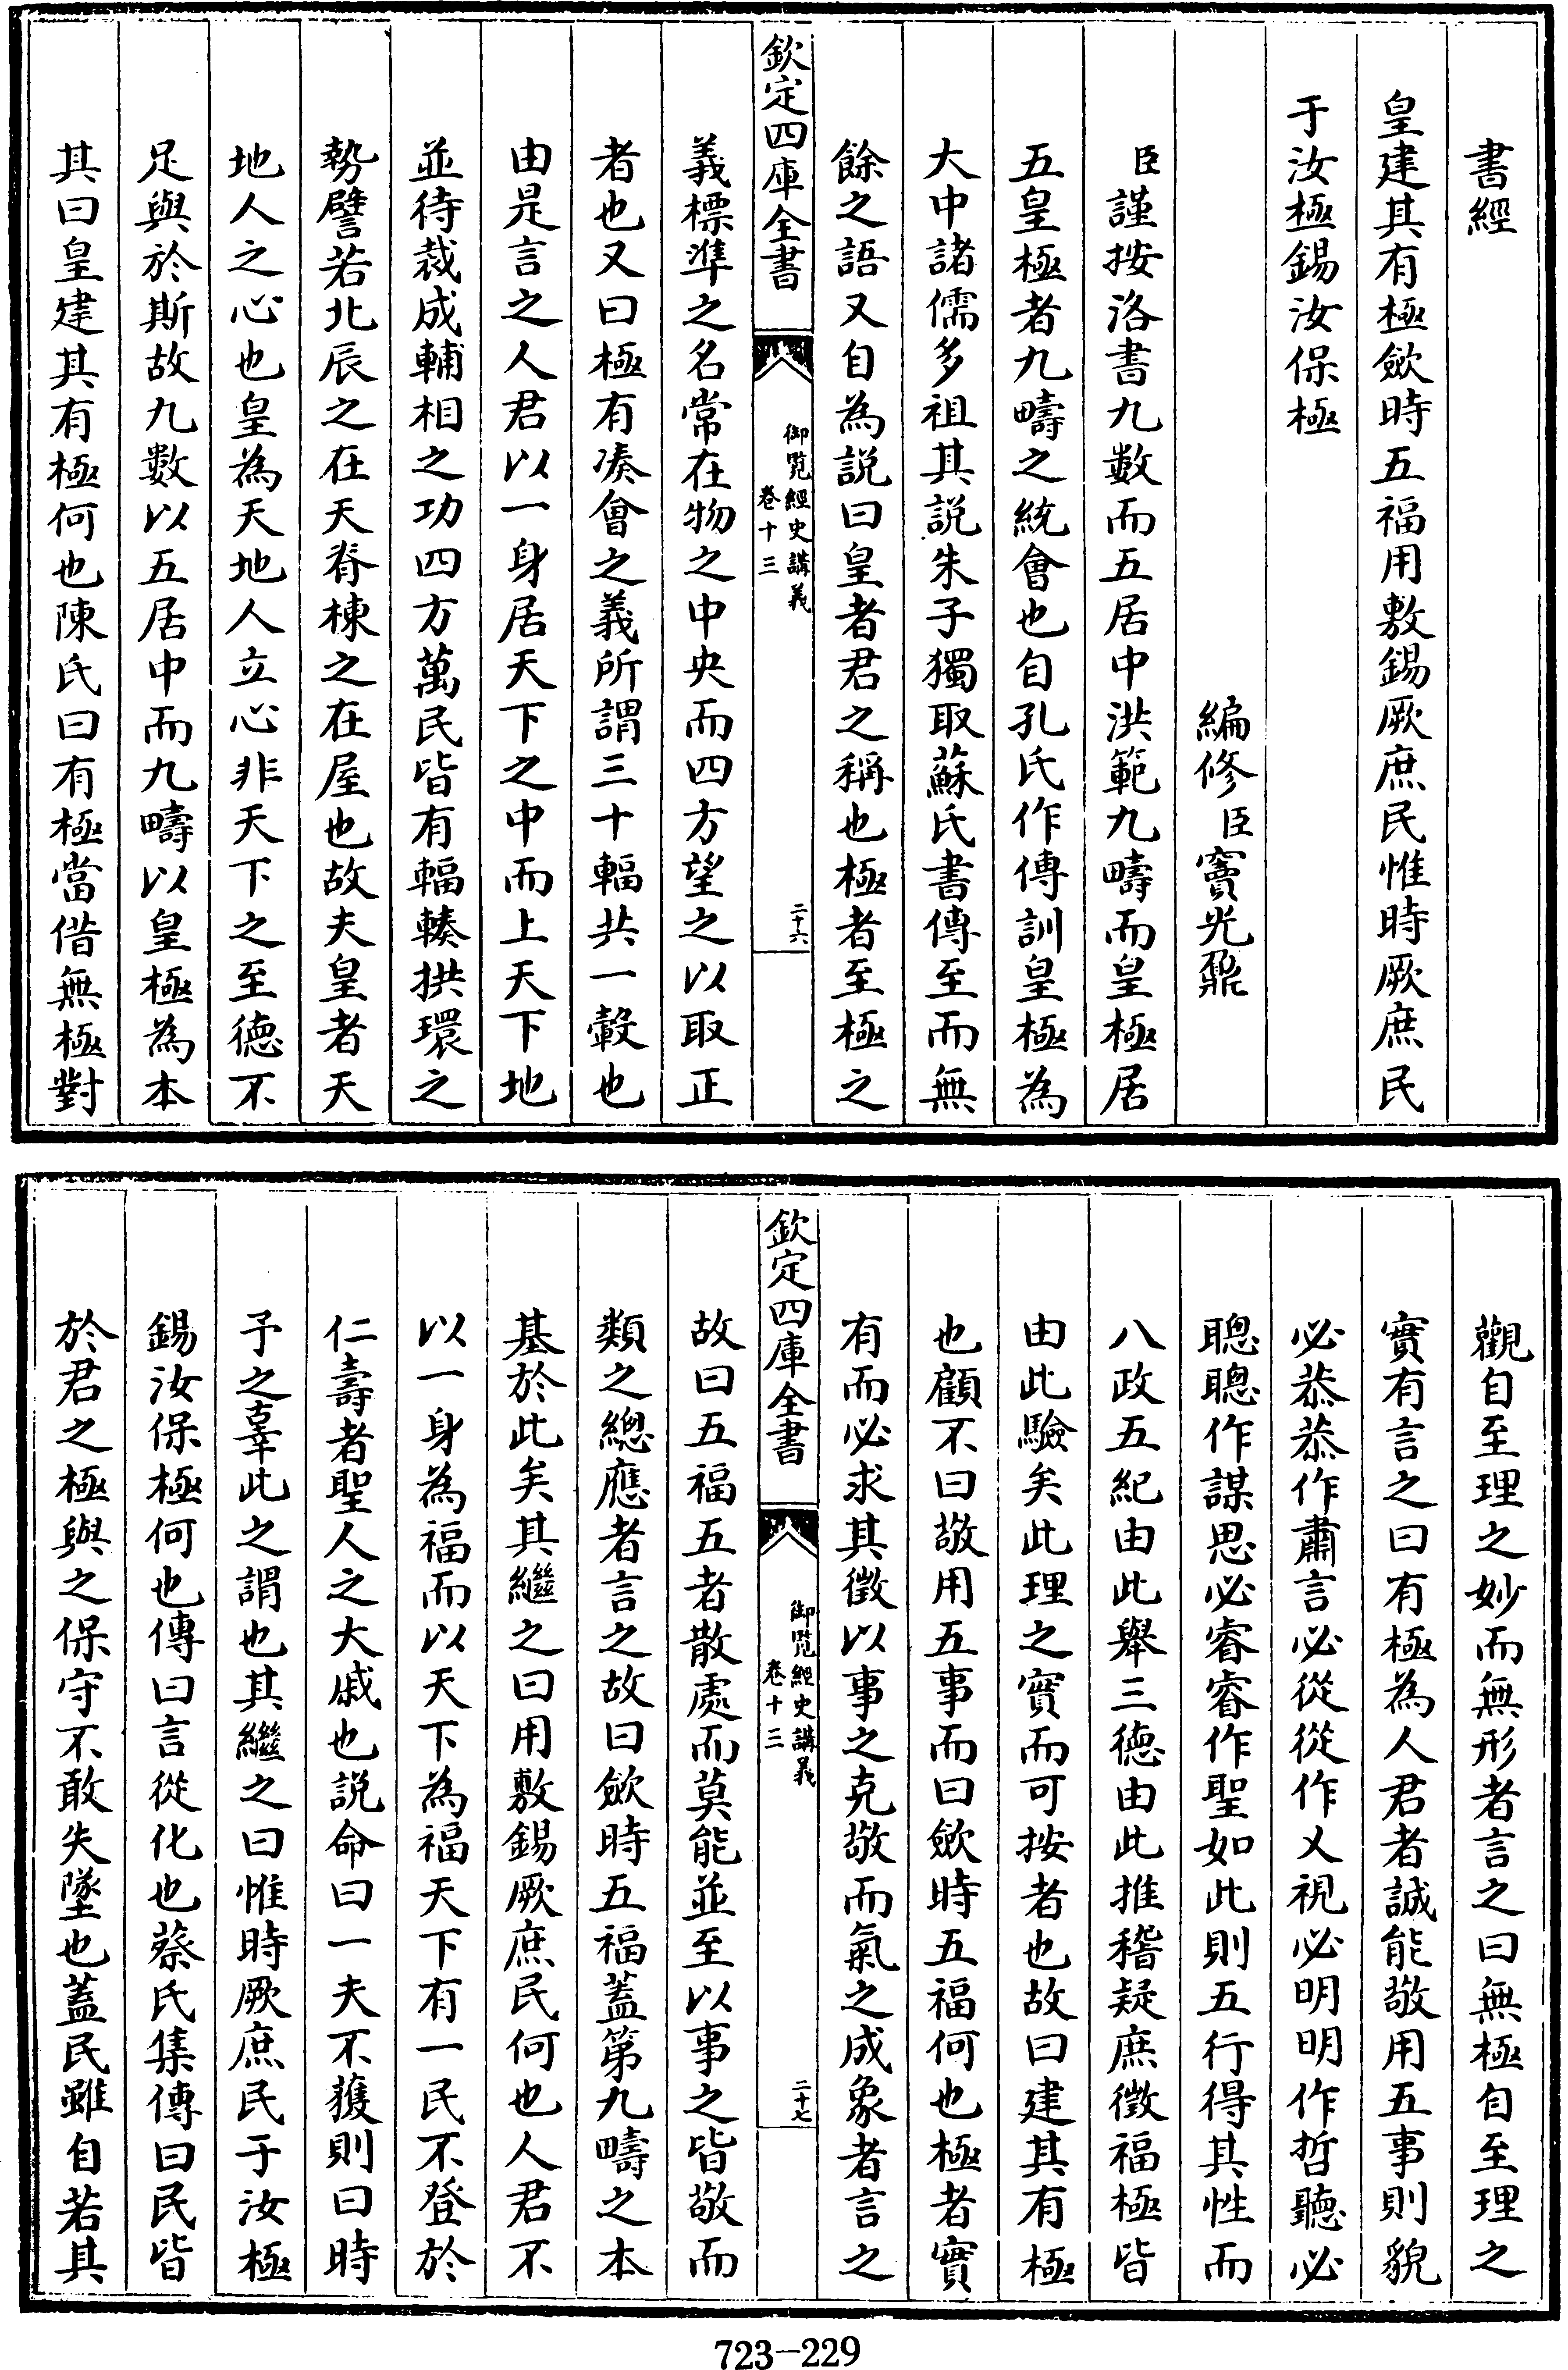 書經
皇建其有極斂時五福用敷錫厥庶民惟時厥庶民
于汝極錫汝保極
編修臣竇光鼐
臣謹按洛書九數而五居中洪範九疇而皇極居
五皇極者九疇之統會也自孔氏作傳訓皇極為
大中諸儒多祖其説朱子獨取蘇氏書傳至而無
餘之語又自為説曰皇者君之稱也極者至極之
欽定四庫全書
御覽經史講義
卷十三
二十六
義標準之名常在物之中央而四方望之以取正
者也又曰極有湊會之義所謂三十輻共一轂也
由是言之人君以一身居天下之中而上天下地
並待裁成輔相之功四方萬民皆有輻輳拱環之
勢譬若北辰之在天脊棟之在屋也故夫皇者天
地人之心也皇為天地人立心非天下之至德不
足與於斯故九數以五居中而九疇以皇極為本
其曰皇建其有極何也陳氏曰有極當借無極對
觀自至理之妙而無形者言之曰無極自至理之
實有言之曰有極為人君者誠能敬用五事則貌
必恭恭作肅言必從從作乂視必明明作哲聽必
聰聰作謀思必睿睿作聖如此則五行得其性而
八政五紀由此舉三德由此推稽疑庶徵福極皆
由此驗矣此理之實而可按者也故曰建其有極
也顧不曰敬用五事而曰斂時五福何也極者實
有而必求其徵以事之克敬而氣之成象者言之
欽定四庫全書
御覽經史講義
卷十三
二十七
故曰五福五者散處而莫能並至以事之皆敬而
類之總應者言之故曰斂時五福蓋第九疇之本
基於此矣其繼之曰用敷錫厥庶民何也人君不
以一身為福而以天下為福天下有一民不登於
仁壽者聖人之大戚也説命曰一夫不獲則曰時
予之辜此之謂也其繼之曰惟時厥庶民于汝極
錫汝保極何也傳曰言從化也蔡氏集傳曰民皆
於君之極與之保守不敢失墜也蓋民雖自若其
723-229